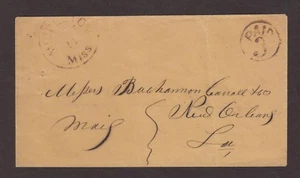 Miss
PAID
Messrs Buchannon Carroll & Co
New Orleans
Mais
La,